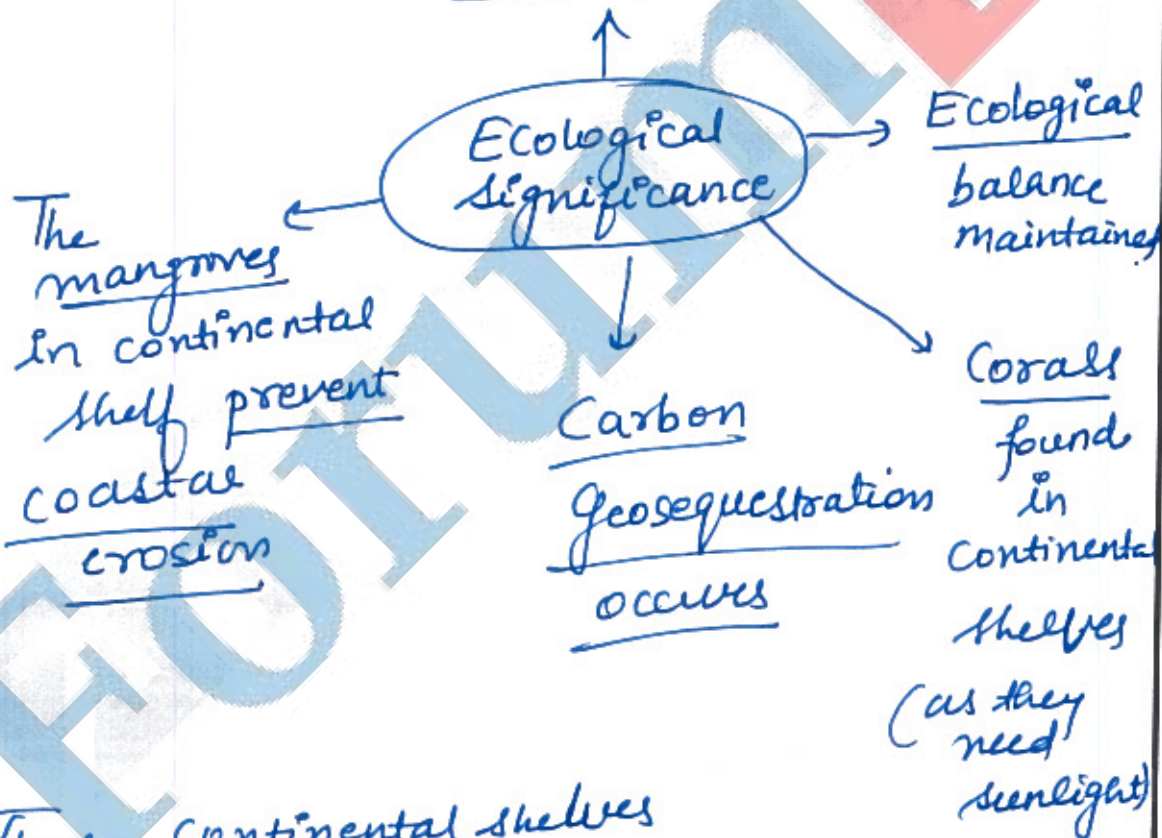 Ecological
significance
Ecological
balance
maintained
The
mangroves
in continental
shelf prevent
coastal
erosion
Carbon
geosequestration
occurs
Corals
found
in
continental
shelves
(as they
need
sunlight)
continental shelves
Forum